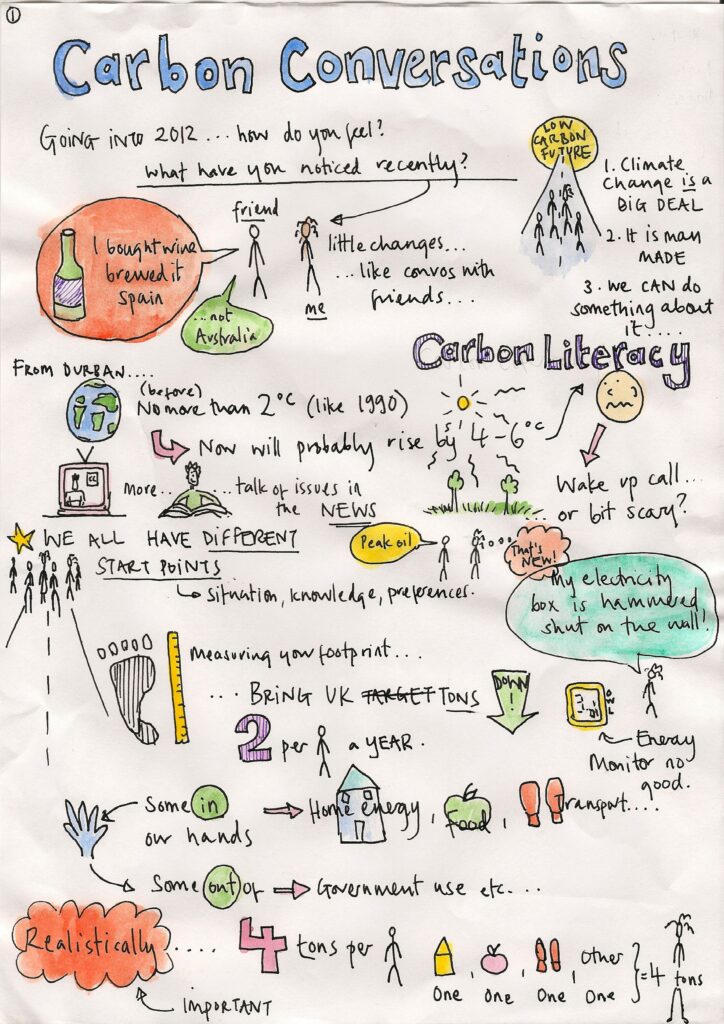 1
Carbon Conversations
GOING INTO 2012... how do you feel?
what have you noticed recently?
LOW
CARBON
FUTURE
1. Climate
Change is a
BIG DEAL
2. It is man
MADE
3. we CAN do
something about
it.....
friend
I bought wine
brewed it
Spain
...not
Australia
me
little changes...
...like convos with
friends...
Carbon Literacy
FROM DURBAN....
(before)
No more than 2°C (like 1990)
Now will probably rise by 4-6°C
Wake up call...
... or bit scary?
more... ...talk of issues in
the NEWS
WE ALL HAVE DIFFERENT
START POINTS
situation, knowledge, preferences.
Peak oil
That's
NEW!
My electricity
box is hammered
shut on the wall!
measuring your footprint...
... BRING UK TARGET TONS
DOWN!
2 per a YEAR.
OWL
Energy
Monitor no
good.
Some in
our hands
Home energy, Food, Transport....
Some out of
Government use etc....
Realistically.....
IMPORTANT
4 tons per
, , , Other
One One One One
=4 tons